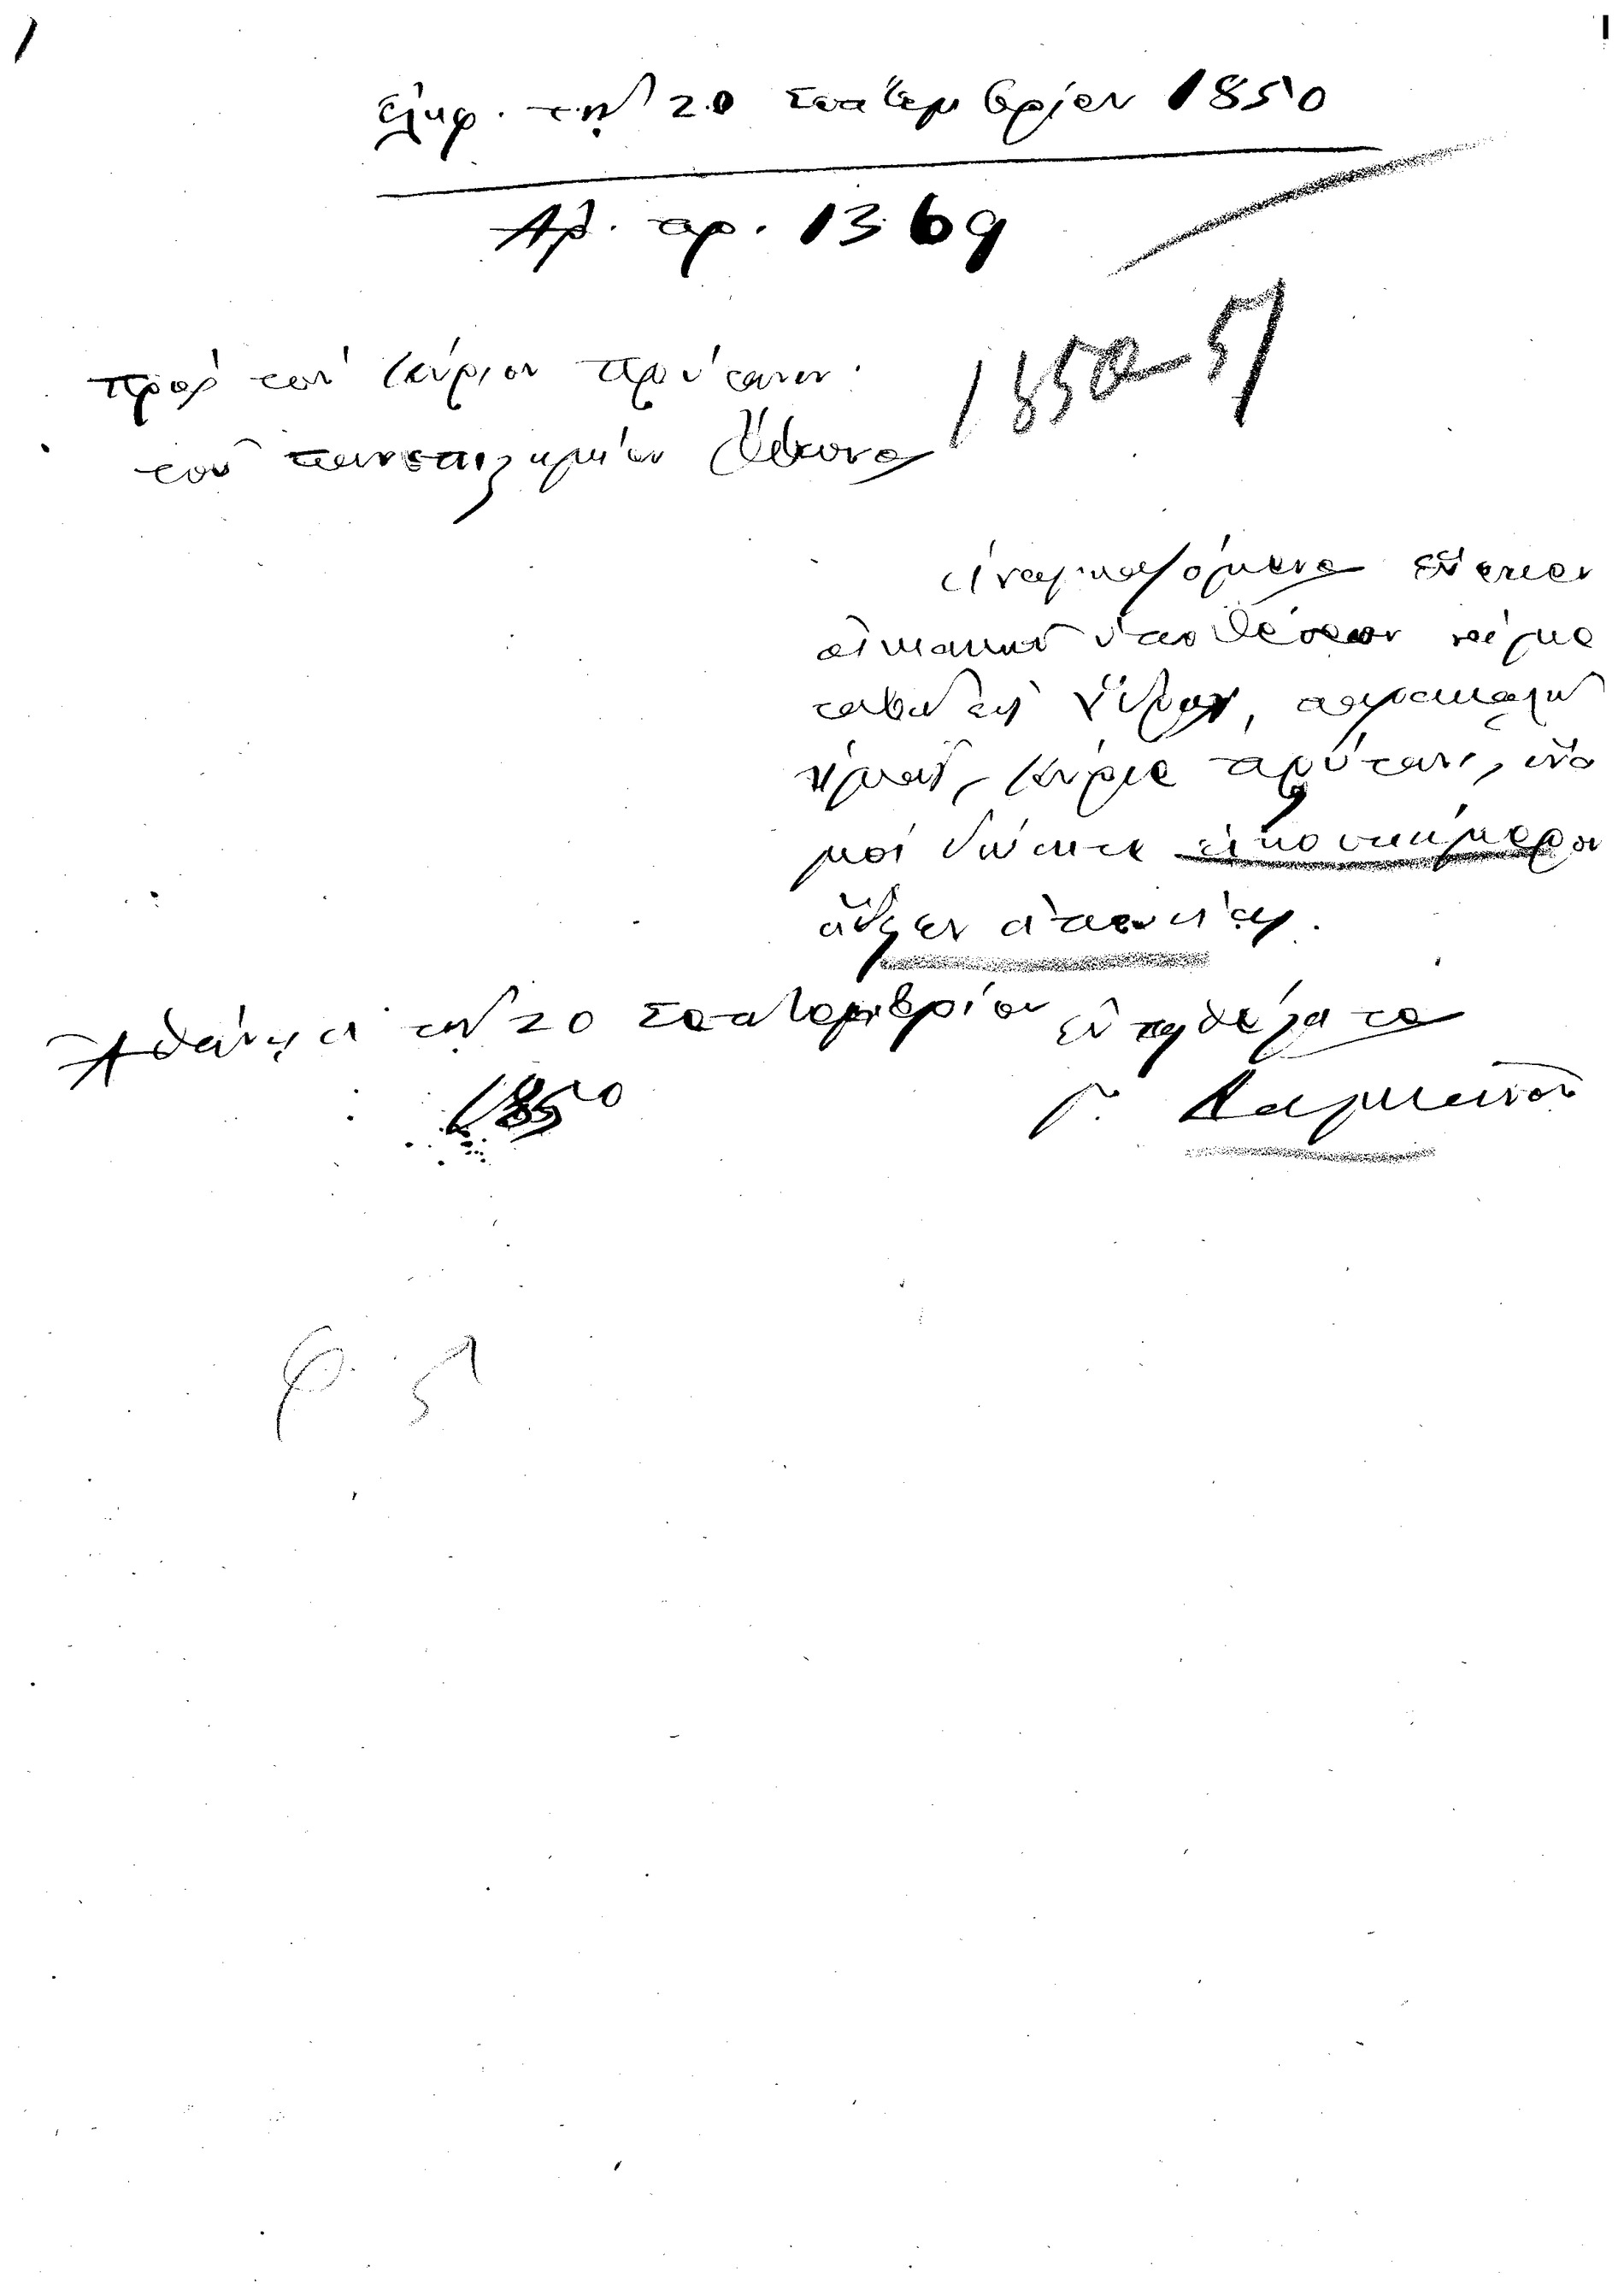 ἐλήφ. τῇ 20 Σεπτεμβρίου 1850
Ἀρ. πρ. 1369
1850-51
Πρὸς τὸν κύριον Πρύτανιν
τοῦ Πανεπιστημίου Ὄθωνος
Ἀναγκαζόμενος ἕνεκεν
οἰκιακῶν ὑποθέσεων νὰ
μεταβῶ εἰς παρακαλῶ
ὑμᾶς, κύριε Πρύτανι, νὰ
μοὶ δώσητε εἰκοσαήμερον
ἄδειαν ἀπουσίας.
Ἀθήνησι τῇ 20 Σεπτεμβρίου εὐπειθέστατος
1850 Γ.
φ. 51